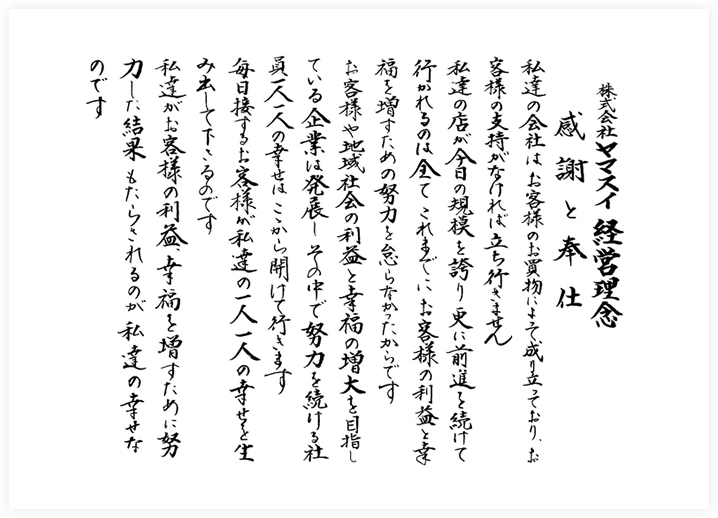 株式会社ヤマスイ 経営理念
感謝と奉仕
私達の会社は お客様のお買物によって成り立っており、お
客様の支持がなければ立ち行きません
私達の店が今日の規模を誇り 更に前進を続けて
行かれるのは全て これまでに お客様の利益と幸
福を増すための努力を怠らなかったからです
お客様や地域社会の利益と幸福の増大を目指し
ている企業は発展し その中で努力を続ける社
員一人一人の幸せは ここから開けて行きます
毎日接するお客様が私達の一人一人の幸せを生
み出して下さるのです
私達がお客様の利益、幸福を増すために努
力した結果 もたらされるのが 私達の幸せな
のです